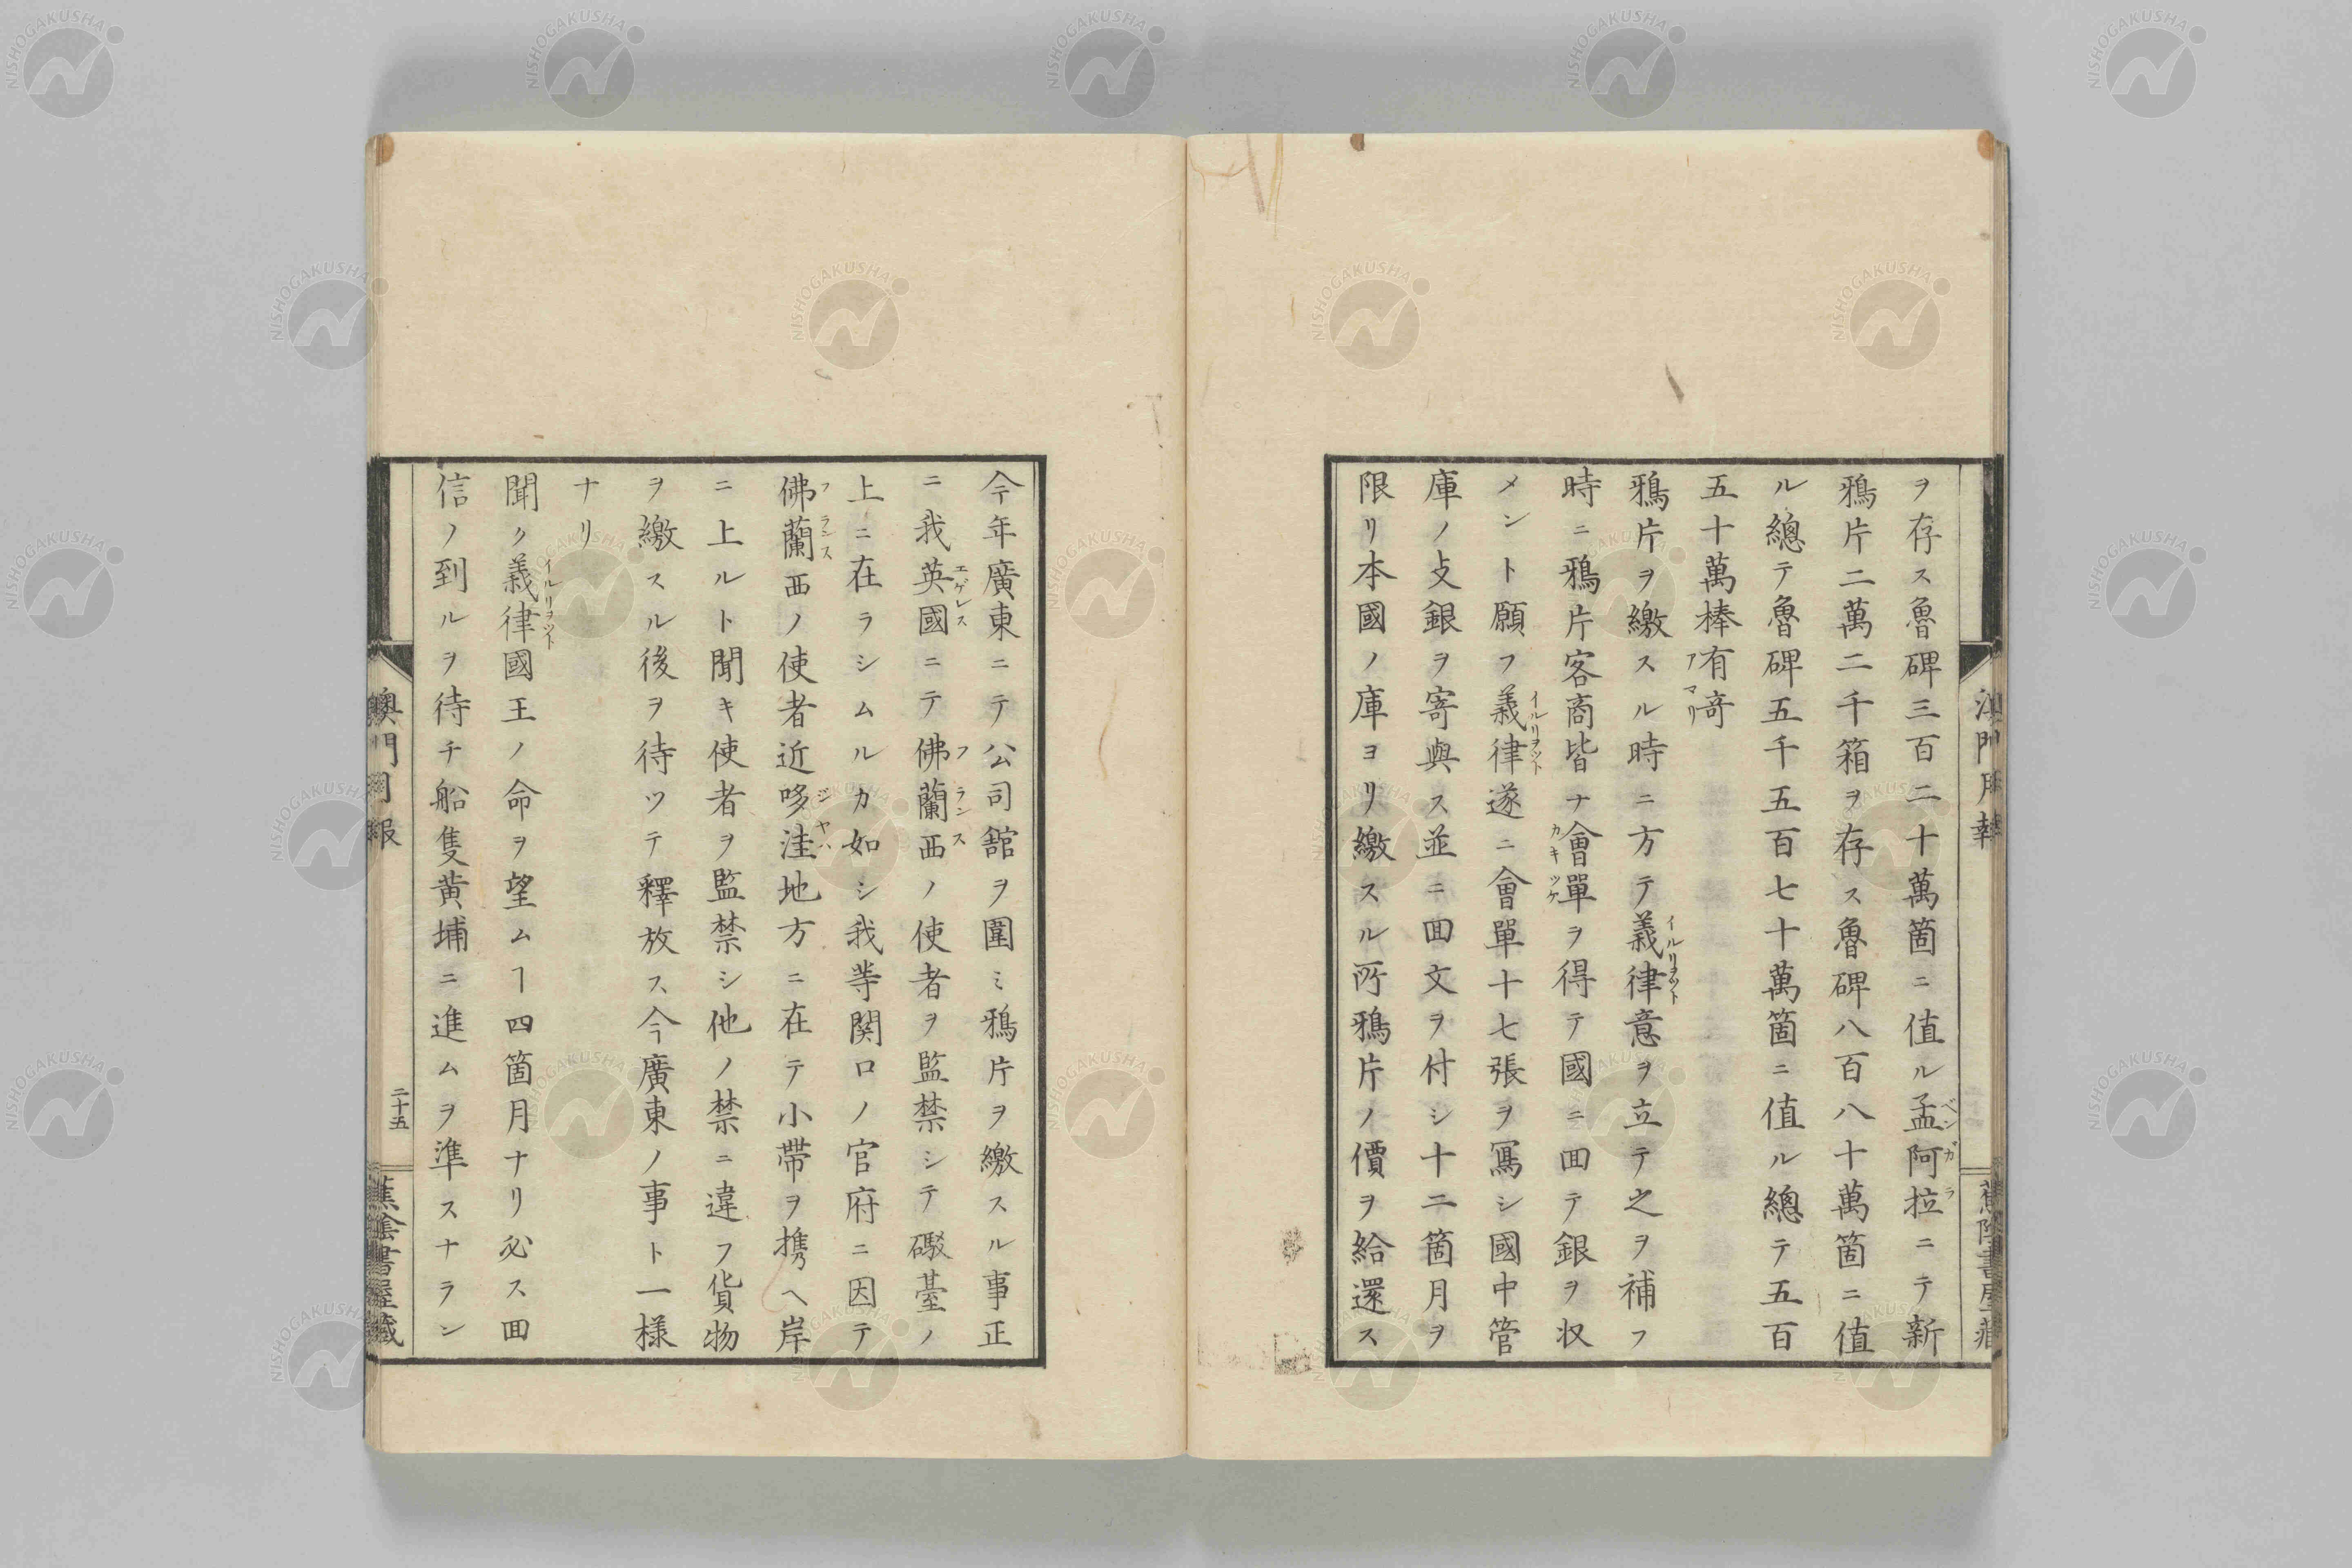 ヲ存ス魯碑三百二十萬箇ニ値ル孟阿拉ニテ新
ベンガラ
鴉片二萬二千箱ヲ存ス魯碑八百八十萬箇ニ値
ル總テ魯碑五千五百七十萬箇ニ値ル總テ五百
五十萬棒有奇
アマリ
鴉片ヲ繳スル時ニ方テ義律意ヲ立テ之ヲ補フ
イルリヲツト
時ニ鴉片客商皆ナ會單ヲ得テ國ニ囬テ銀ヲ収
カキツケ
メント願フ義律遂ニ會單十七張ヲ寫シ國中管
イルリヲツト
庫ノ攴銀ヲ寄與ス並ニ囬文ヲ付シ十二箇月ヲ
限リ本國ノ庫ヨリ繳スル所鴉片ノ價ヲ給還ス
澳門月報
蕉陰書屋藏
今年廣東ニテ公司舘ヲ圍ミ鴉片ヲ繳スル事正
ニ我英國ニテ佛蘭西ノ使者ヲ監禁シテ礟臺ノ
エゲレス
フランス
上ニ在ラシムルカ如シ我等関口ノ官府ニ因テ
佛蘭西ノ使者近哆洼地方ニ在テ小帶ヲ携ヘ岸
フランス
ジヤハ
ニ上ルト聞キ使者ヲ監禁シ他ノ禁ニ違フ貨物
ヲ繳スル後ヲ待ツテ釋放ス今廣東ノ事ト一様
ナリ
聞ク義律國王ノ命ヲ望ムヿ四箇月ナリ必ス囬
イルリヲツト
信ノ到ルヲ待チ船隻黄埔ニ進ムヲ準スナラン
澳門月報
二十五
蕉陰書屋藏